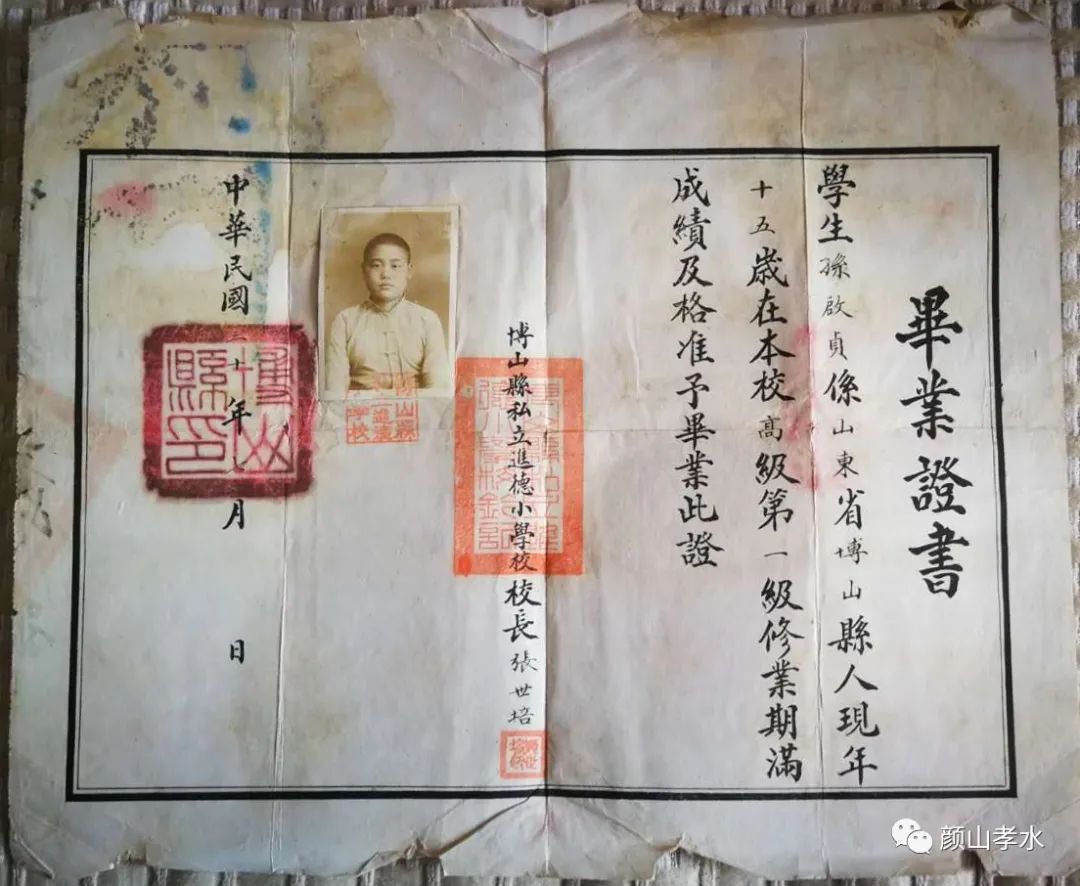 畢業證書
學生孫啟貞係山東省博山縣人現年
十五歲在本校高級第一級修業期滿
成績及格准予畢業此證
博山縣私立進德小學校校長張世培
中華民國二十年 月 日
博山縣印
颜山孝水